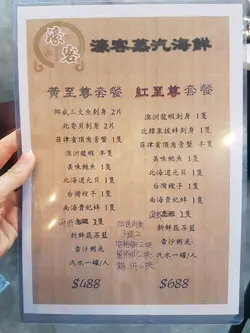 濠客
濠客蒸汽海鮮
黃至尊套餐
挪威三文魚刺身 2片
北寄貝刺身 1片
菲律賓頂角膏蟹 半隻
澳洲龍蝦 半隻
美味鮑魚 1隻
北海道元貝 1隻
台灣樓子 1隻
南海貴妃蚌 1隻
1隻
新鮮蔬菜籃
香沙粥底
汽水一罐/人
$488
紅至尊套餐
澳洲龍蝦 1隻
北韓象拔蚌刺身 1隻
菲律賓頂角膏蟹 1隻
美味鮑魚 1隻
北海道元貝 1隻
台灣樓子 1隻
南海貴妃蚌 1隻
1隻
新鮮蔬菜籃
香沙粥底
汽水一罐/人
$688